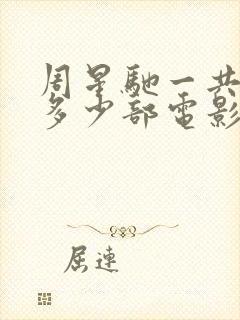 周星馳一共
多少部電影
屈連